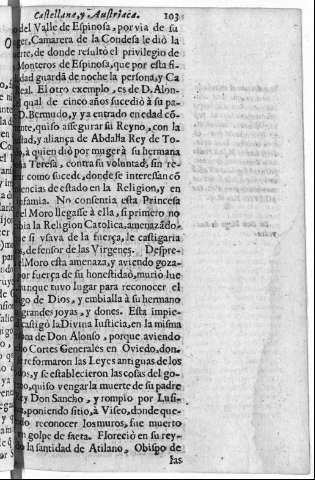 Castellana, y Austriaca. 103
del Valle de Espinosa, por via de su
ger, Camarera de la Condesa le dió la
erte, de donde resultó el privilegio de
Monteros de Espinosa, que por esta fi-
idad guardã de noche la persona, y Ca
Real. El otro exemplo, es de D. Alon-
qual de cinco años sucedió a su pa-
D. Bermudo, y ya entrado en edad cõ-
ente, quiso assegurar su Reyno, con la
tad, y aliança de Abdalla Rey de To-
o, à quien dió por muger à su hermana
a Teresa, contra su voluntad, sin re-
como sucede, donde se interesan cõ
encias de estado en la Religion, y en
famia. No consentia esta Princesa
el Moro llegasse à ella, si primero no
bia la Religion Catolica, amenazãdo-
e si vsava de la fuerça, le castigaria
s, defensor de las Virgenes. Despre-
el Moro esta amenaza, y aviendo goza-
or fuerça de su honestidad, murió lue
unque tuvo lugar para reconocer el
go de Dios, y embialla à su hermano
grandes joyas, y dones. Esta impie-
castigó la Divina Iusticia, en la misma
de Don Alonso, porque aviendo
o Cortes Generales en Oviedo, don-
reformaron las Leyes antiguas de los
os, y se establecieron las cosas del go-
no, quiso vengar la muerte de su padre
Rey Don Sancho, y rompio por Lusi-
, poniendo sitio, à Viseo, donde que-
do reconocer los muros, fue muerto
en golpe de saeta. Floreció en su rey-
o la santidad de Atilano, Obispo de
las